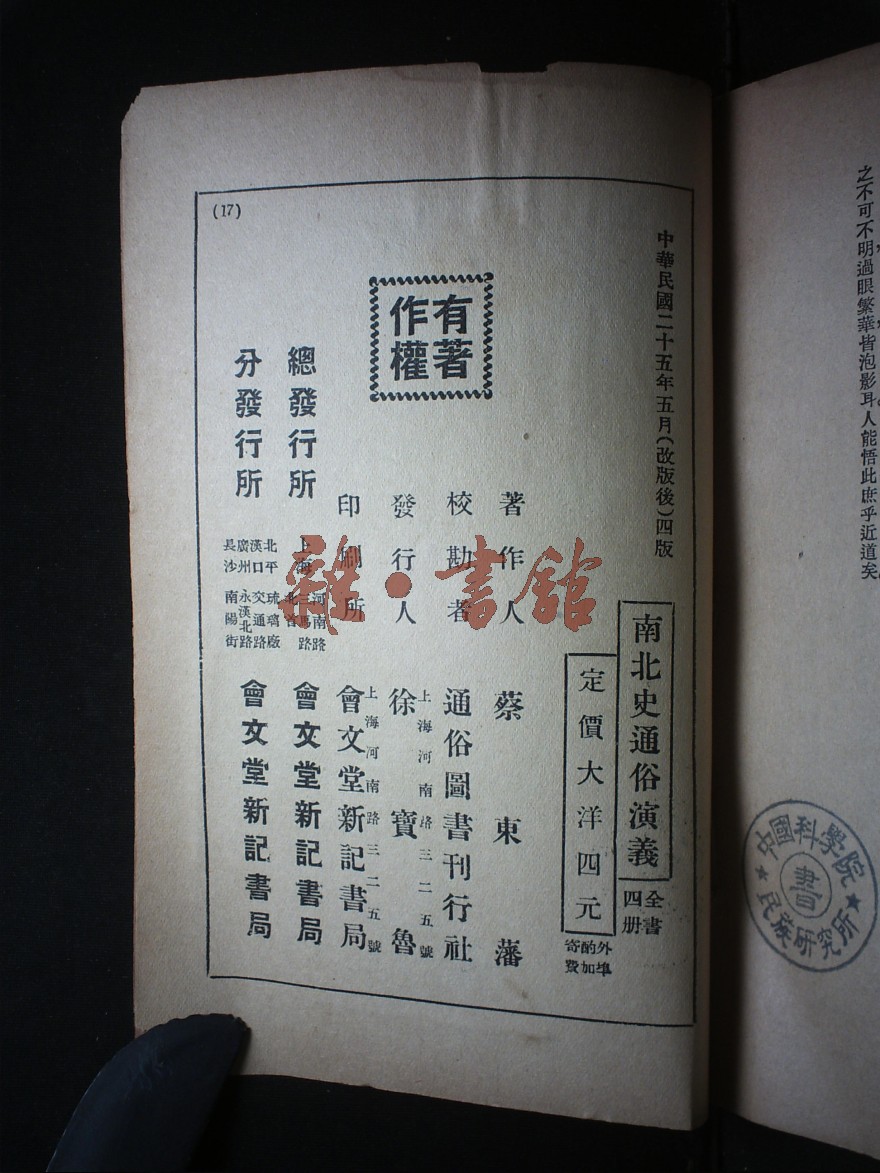 之不可不明過眼繁華皆泡影耳人能悟此庶乎近道矣
中國科學院
民族研究所
書
中華民國二十五年五月(改版後)四版
南北史通俗演義
全書
四册
定價大洋四元
外埠
酌加
寄費
著作人
蔡東藩
校勘者
通俗圖書刊行社
發行人
上海河南路三二五號
徐寶魯
印刷所
上海河南路三二五號
會文堂新記書局
有著
作權
總發行所
上海
河南路
北首
會文堂新記書局
分發行所
北平
漢口
廣州
長沙
琉璃廠
交通路
永漢北路
南陽街
會文堂新記書局
(17)
雜·書館